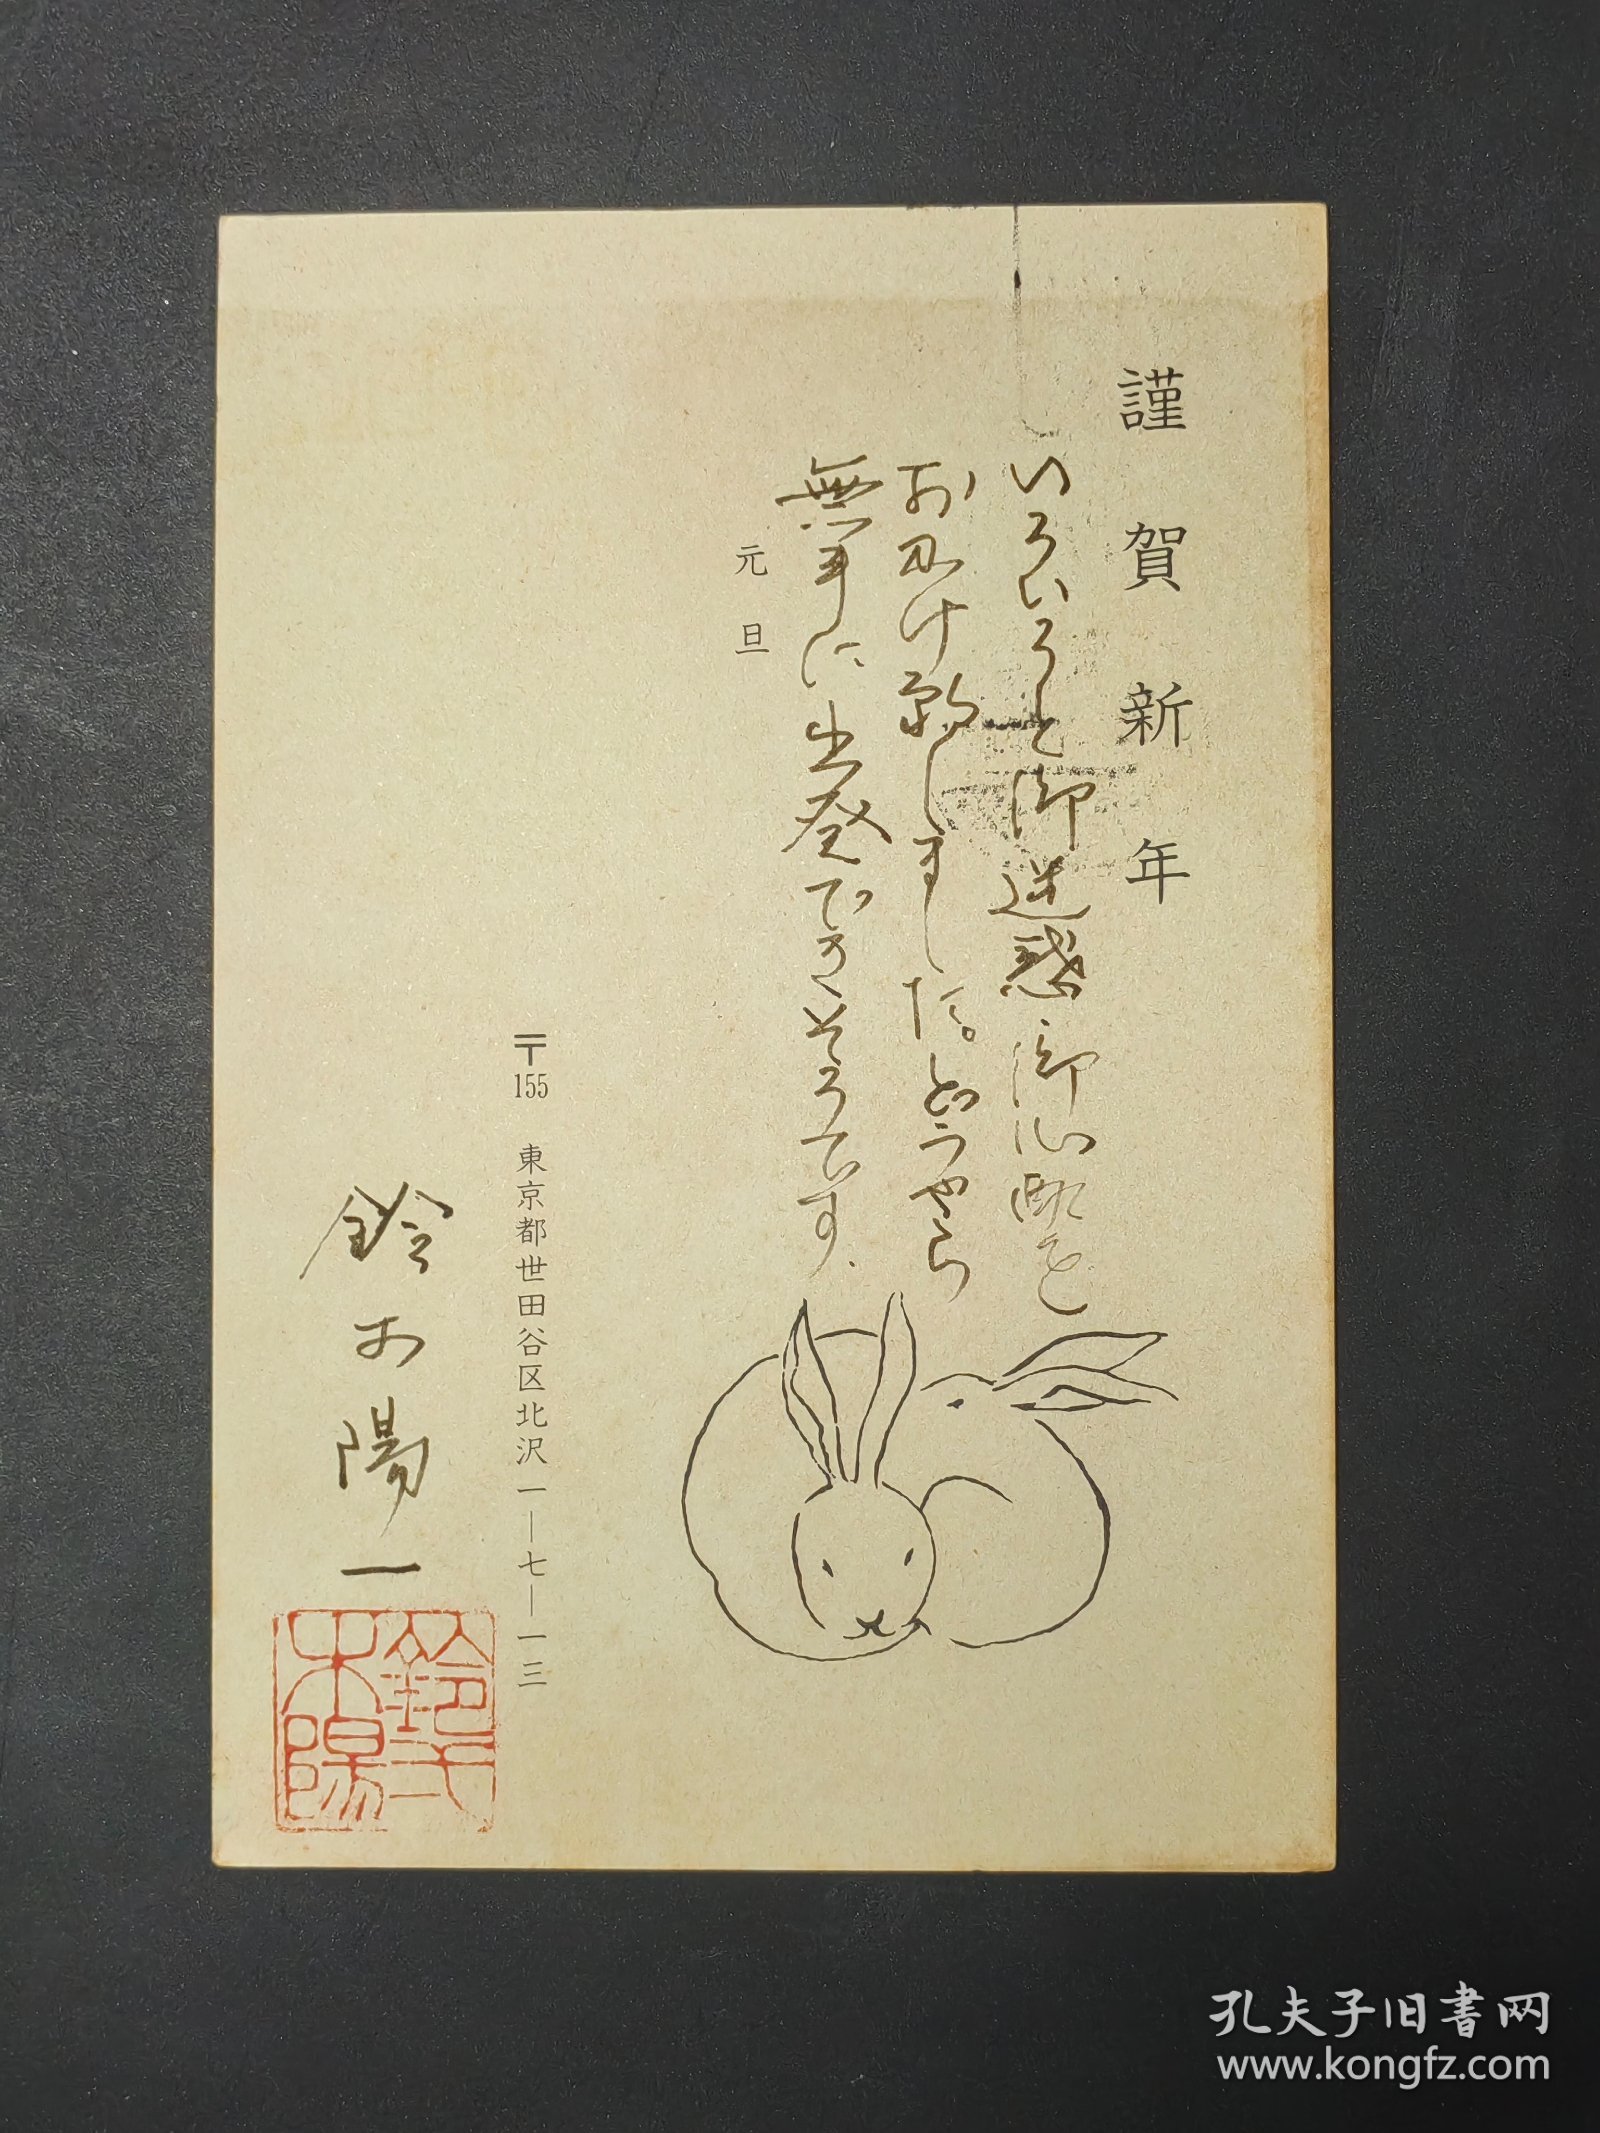 謹賀新年
いろいろと御迷惑御心配を
おかけ致しました。どうやら
無事に出発できそうです。
元旦
〒155 東京都世田谷区北沢一―七―一三
鈴木陽一
孔夫子旧书网
www.kongfz.com